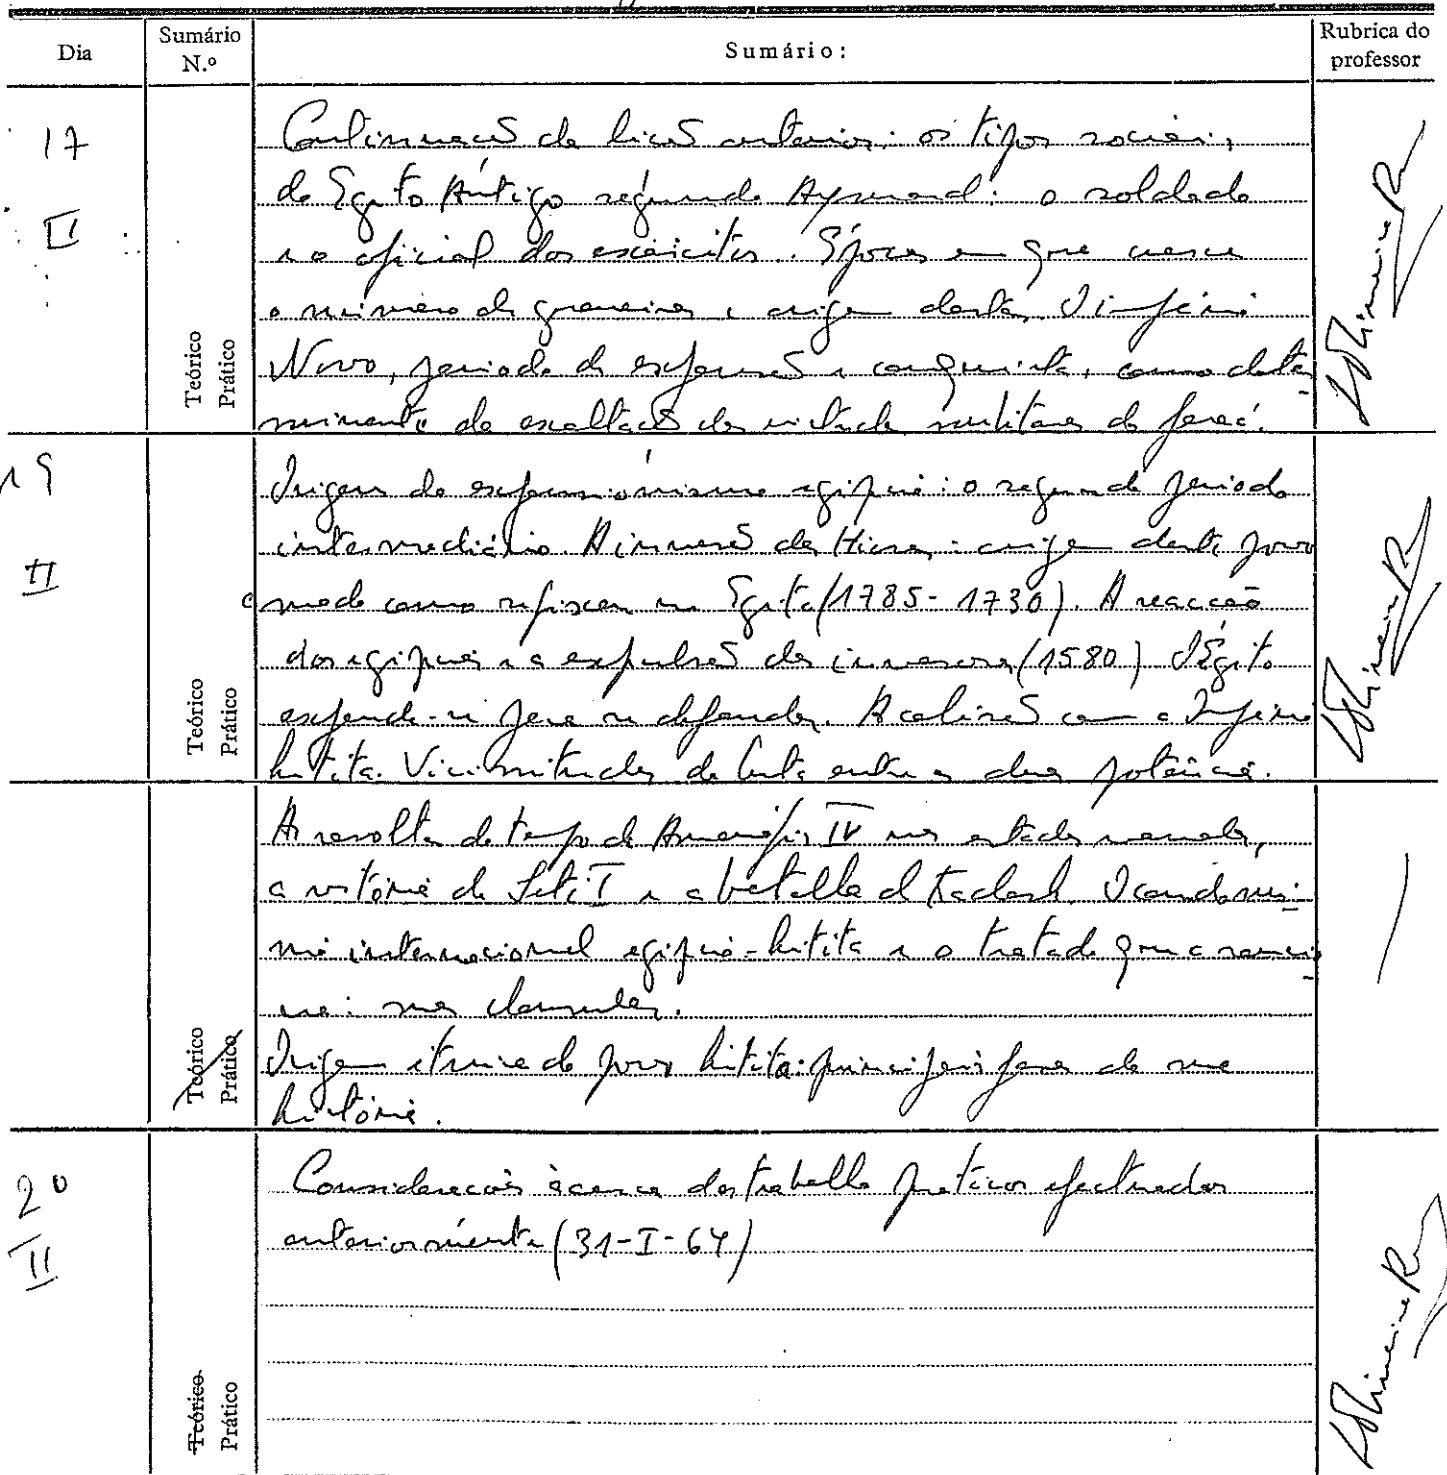 Dia
Sumário N.º
Sumário:
Rubrica do professor
17
II
Teórico
Prático
Continuação da lição anterior: os tipos sociais,
do Egito Antigo segundo Aymard: o soldado
e o oficial dos exércitos. Épocas em que cresce
o número de guerreiros e origem destes. O império
Novo, período de expansão e conquista, como deter
minante da exaltação das virtudes militares do faraó.
19
II
Teórico
Prático
Origem do expansionismo egípcio: o segundo período
intermediário. A invasão dos Hicsos: origem deste povo
e modo como se fixam no Egito (1785-1730). A reacção
dos egípcios e a expulsão dos invasores (1580) O Egito
expande-se para se defender. A colisão com o Império
hitita. Vicissitudes da luta entre as duas potências.
Teórico
Prático
A revolta do tempo de Amenófis IV nos estados vassalos,
a vitória de Seti I e a batalha de Kadesh. O condomí-
nio internacional egípcio-hitita e o tratado que o sancio-
na: suas cláusulas.
Origem étnica do povo hitita: principais fases da sua
história.
20
II
Teórico
Prático
Considerações àcerca dos trabalhos práticos efectuados
anteriormente (31-I-64)